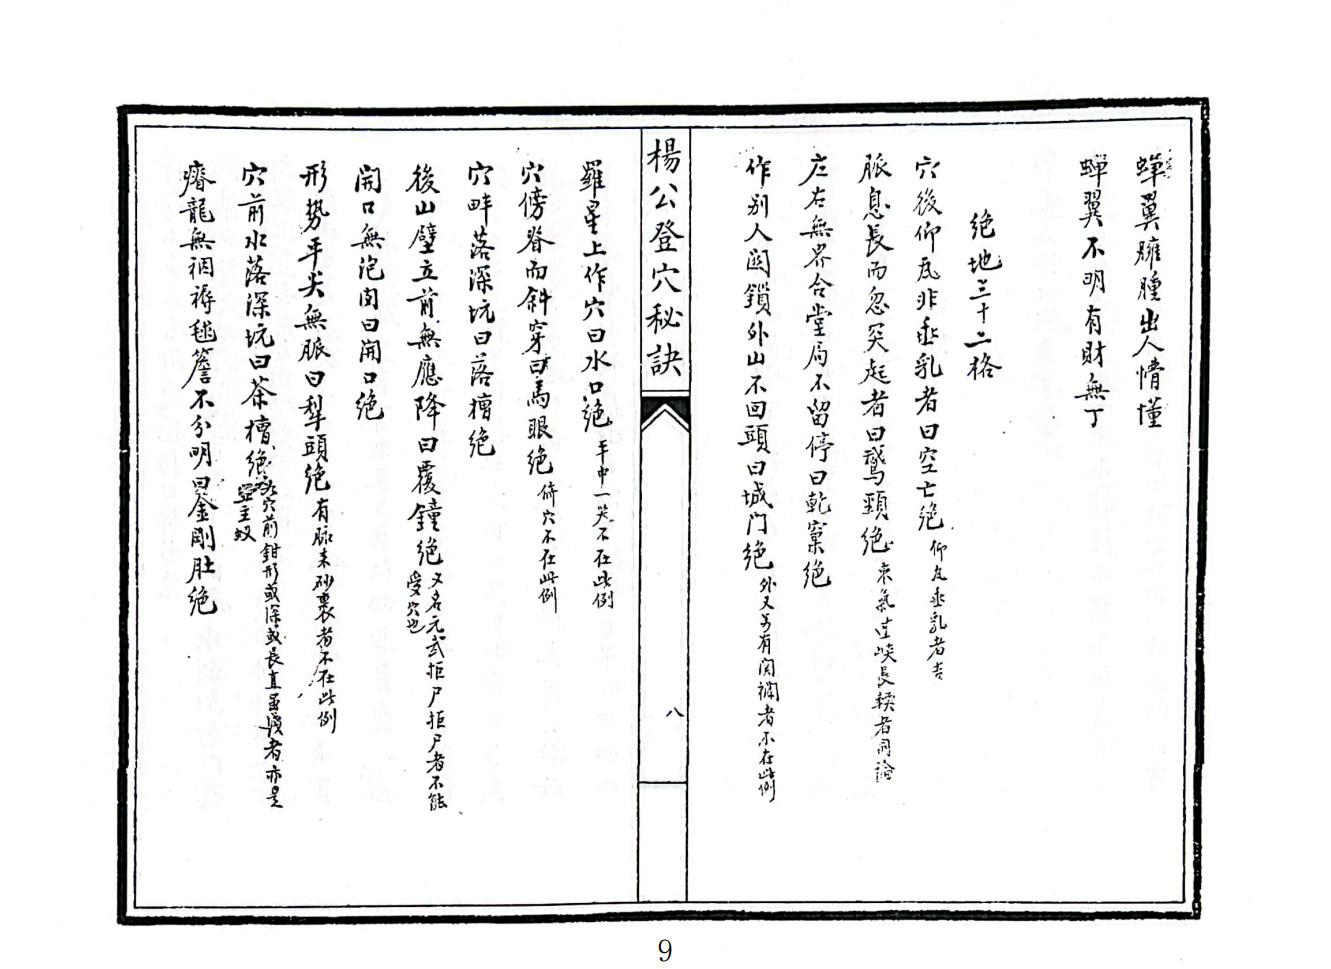 蟬翼臃腫出人情懂
蟬翼不明有財無丁
絕地三十二格
穴後仰瓦非垂乳者曰空亡絕 仰瓦垂乳者吉
脈息長而忽突起者曰鵞頸絕 來氣過峽長輭者同論
左右無界合堂局不留停曰乾窠絕
作別人関鎖外山不回頭曰城门絕 外又另有関襴者不在此例
楊公登穴秘訣
八
羅星上作穴曰水口絕 平中一突不在此例
穴傍脊而斜穿曰馬眼絕 倚穴不在此例
穴畔落深坑曰落槽絕
後山壁立前無應降曰覆鐘絕 又名元武拒尸拒尸者不能
受穴也
開口無泡肉曰開口絕
形勢平尖無脈曰犁頭絕 有脈未砂裏者不在此例
穴前水落深坑曰茶槽絕 穴前鉗形或深或長直者亦是
瘠龍無裀褥毬簷不分明曰金剛肚絕
9